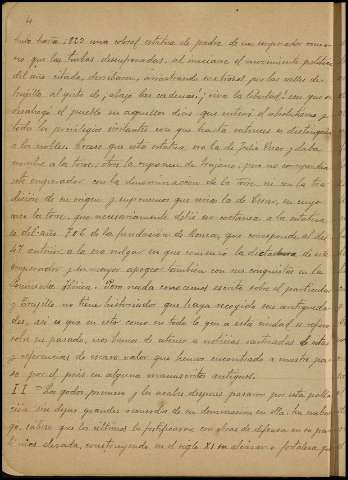 4
hubo hasta 1823 una colosal estatua de piedra de un emperador roma-
no que las turbas desenfrenadas, al iniciarse el movimiento político
del año citado, derribaron, arrastrando sus trozos por las calles de
Trujillo al grito de ¡abajo las cadenas! ¡viva la libertad! con que se
desahogó el pueblo en aquellos dias que enterró el absolutismo y
todo los privilegios irritantes con que hasta entonces se distinguia
á los nobles. Créese que esta estatua era la de Julio César, y daba
nombre á la torre, otros la suponen de Trajano, pero no correspondia
este emperador con la denominacion de la torre ni con la tra-
dicion de su origen y suponemos que seria la de César, en cuyo
caso la torre, que necesariamente debió ser coetánea á la estatua
es del año 706 de la fundacion de Roma, que corresponde al de
47 anterior á la era vulgar en que comenzó la dictadura de este
emperador y su mayor apogeo tambien con sus conquistas en la
Península Ibérica. Pero nada conocemos escrito sobre el particular
y Trujillo no tiene historiador que haya recogido sus antigueda-
des, asi es que en esto como en todo lo que á esta ciudad se refiere
sobre su pasado, nos hemos de atener á noticias rastreadas de citas
y referencias de escaso valor que hemos encontrado á nuestro pa-
so por el país en algunos manuscritos antiguos.
II = Los godos, primero, y los árabes despues pasaron por esta pobla-
cion sin dejar grandes recuerdos de su dominacion en ella. Sin embar-
go, sabese que los últimos la fortificaron con obras de defensa en su par-
te mas elevada, construyendo en el siglo XI su alcázar ó fortaleza, que